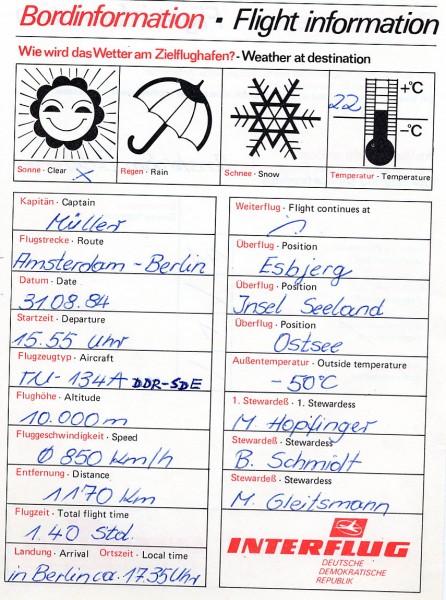 Bordinformation · Flight information
Wie wird das Wetter am Zielflughafen? - Weather at destination
22
+°C
-°C
Sonne · Clear X
Regen · Rain
Schnee · Snow
Temperatur · Temperature
Kapitän · Captain
Müller
Flugstrecke · Route
Amsterdam - Berlin
Datum · Date
31.08.84
Startzeit · Departure
15.55 Uhr
Flugzeugtyp · Aircraft
TU-134A DDR-SDE
Flughöhe · Altitude
10.000 m
Fluggeschwindigkeit · Speed
Ø 850 km/h
Entfernung · Distance
1170 km
Flugzeit · Total flight time
1.40 Std.
Landung · Arrival Ortszeit · Local time
in Berlin ca. 17.35 Uhr
Weiterflug · Flight continues at
Überflug · Position
Esbjerg
Überflug · Position
Insel Seeland
Überflug · Position
Ostsee
Außentemperatur · Outside temperature
-50°C
1. Stewardeß · 1. Stewardess
M. Hopfinger
Stewardeß · Stewardess
B. Schmidt
Stewardeß · Stewardess
M. Gleitsmann
INTERFLUG
DEUTSCHE
DEMOKRATISCHE
REPUBLIK